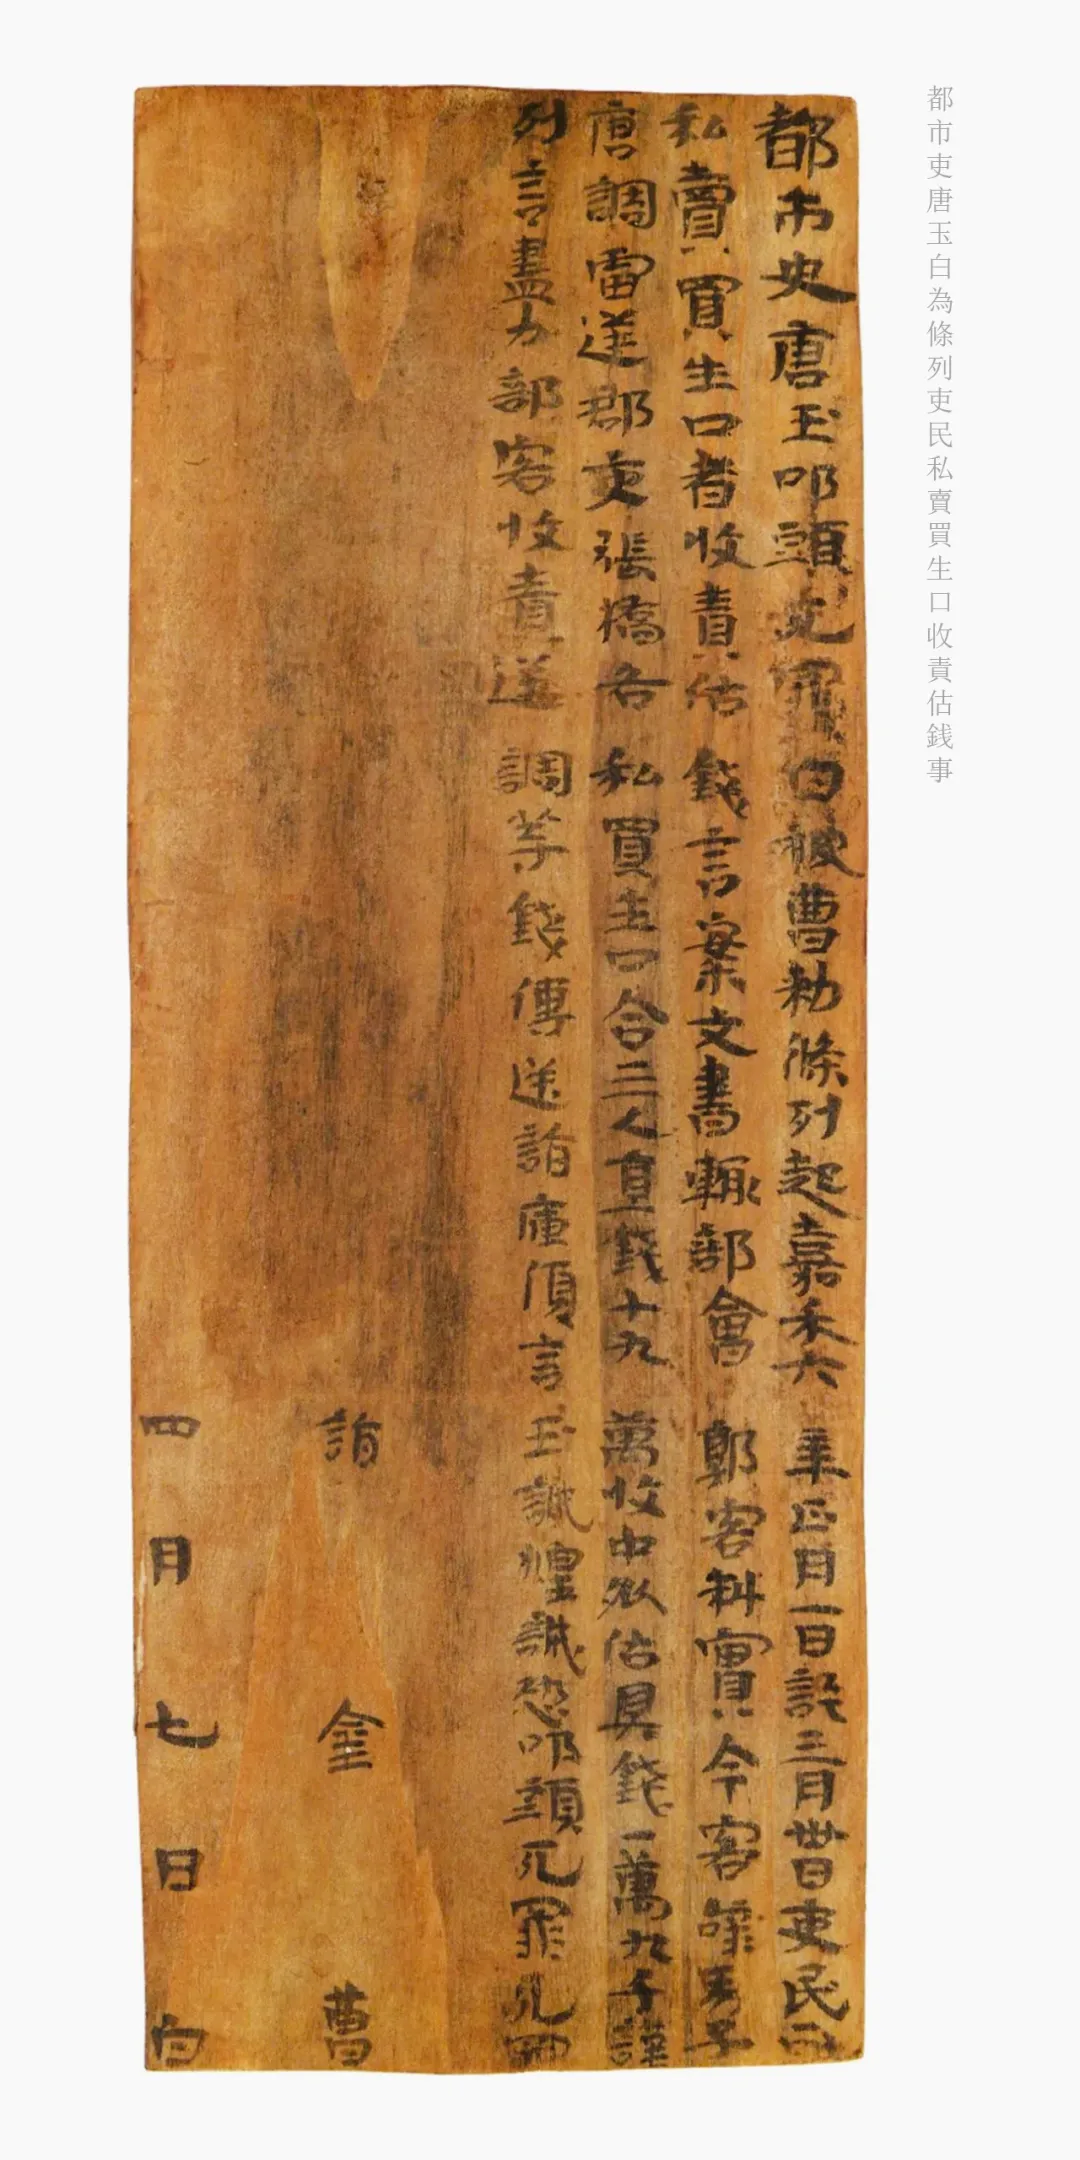 都市吏唐玉白為條列吏民私賣買生口收責估錢事
都市史唐玉叩頭死罪白被曹勑條列起嘉禾六年正月一日訖三月卅日吏民所
私賣買生口者收責估錢言案文書輒部會郭客料實今客辭男子
唐調雷逆郡吏張橋各私買生口合三人直錢十九萬收中外估具錢一萬九千謹
列言盡力部客收責逆調等錢傳送詣庫復言玉誠惶誠恐叩頭死罪死罪
詣金曹
四月七日白